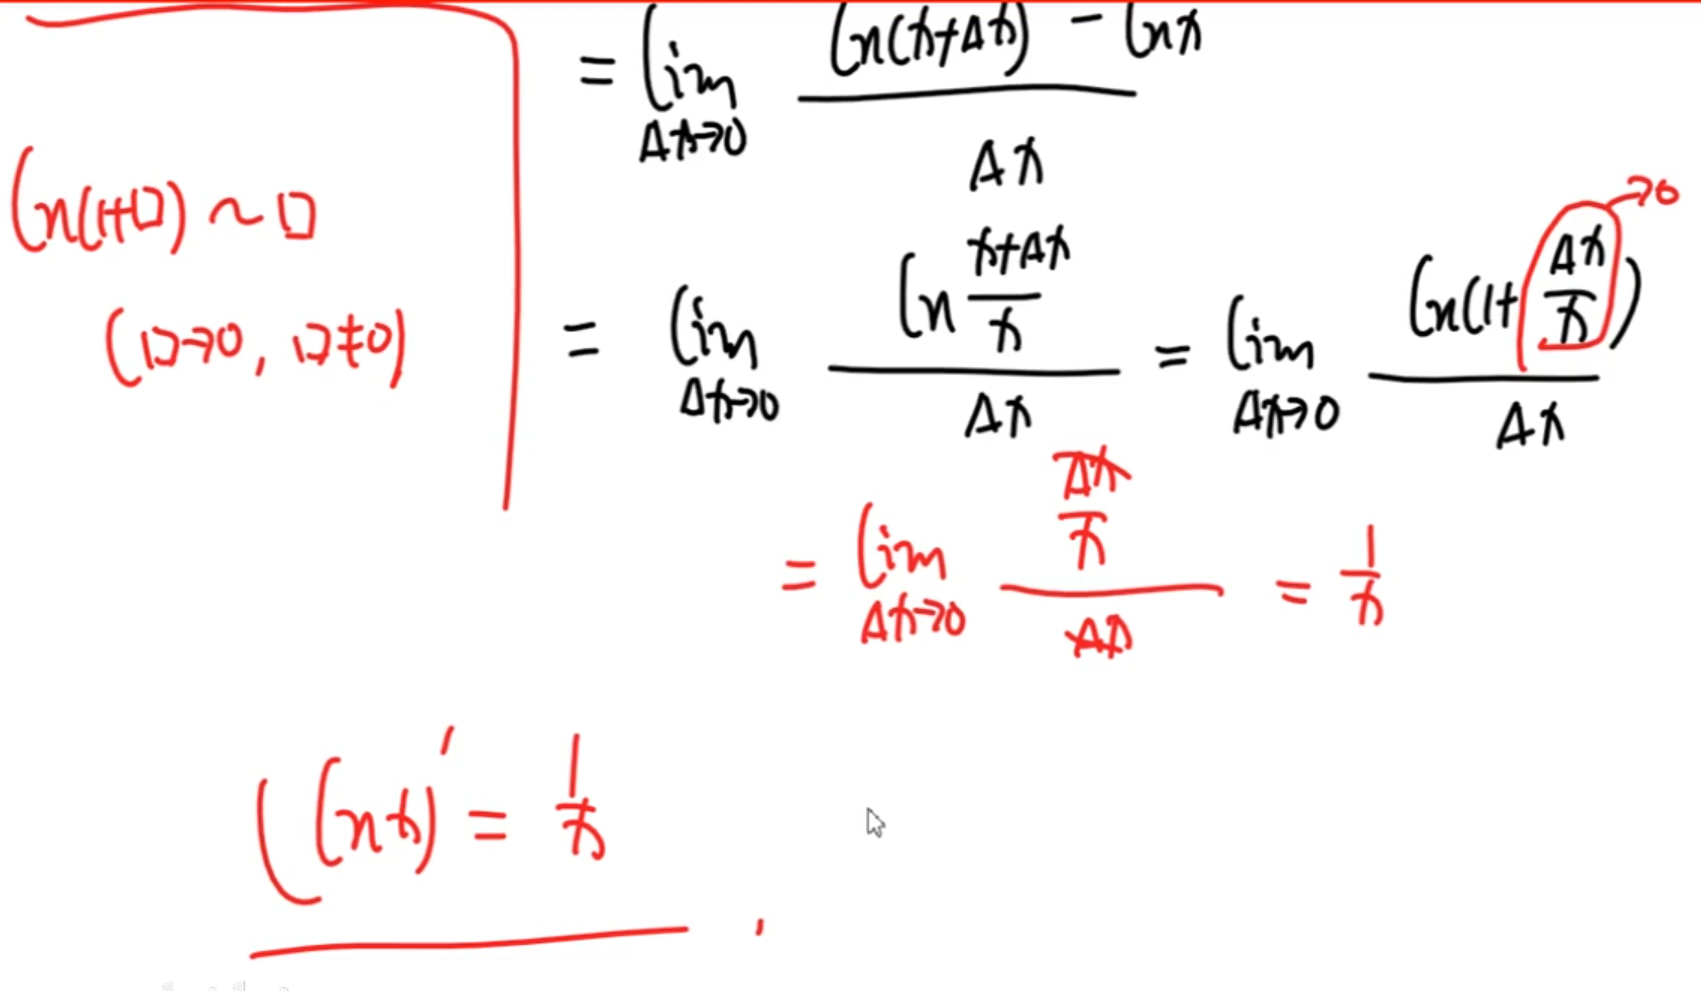 = lim_{Δx→0} \frac{ln(x+Δx) - lnx}{Δx}
ln(1+□) ~ □
(□→0, □≠0)
= lim_{Δx→0} \frac{ln \frac{x+Δx}{x}}{Δx} = lim_{Δx→0} \frac{ln(1+\frac{Δx}{x})}{Δx} →0
= lim_{Δx→0} \frac{\frac{Δx}{x}}{Δx} = \frac{1}{x}
(lnx)' = \frac{1}{x}